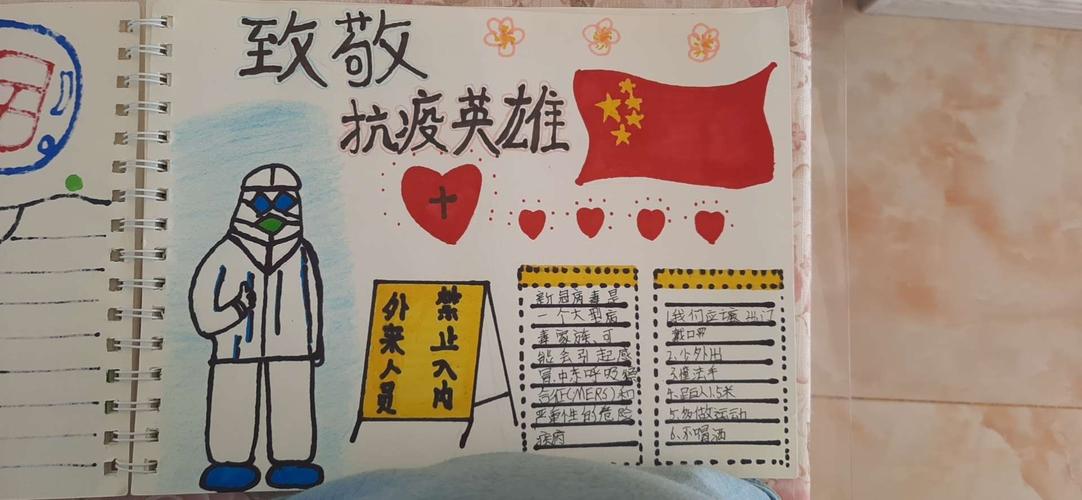 致敬
抗疫英雄
外来人员
禁止入内
新冠病毒是
一个大型病
毒家族,可
能会引起感
冒,中东呼吸综
合征(MERS)和
严重性的危险
疾病
1.我们应该出门
戴口罩
2.少外出
3.洗手
4.人1.5米
5.多做运动
6.不喝酒